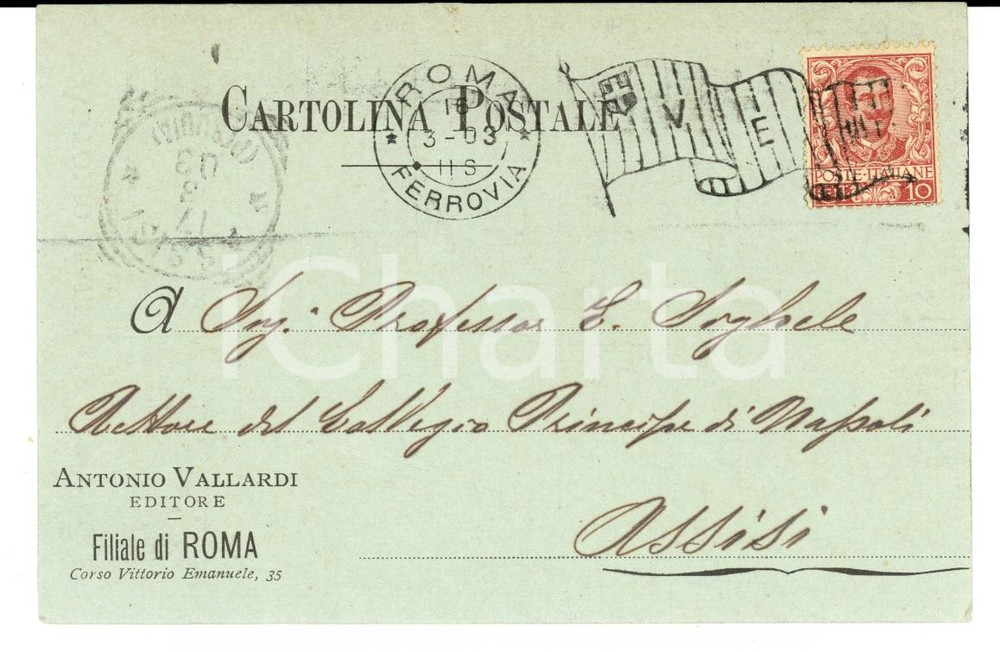 CARTOLINA POSTALE
ROMA
16
3-03
11S
FERROVIA
V E
POSTE ITALIANE
10
(PERUGIA)
17
3
03
ASSISI
iCharta
A Sig. Professor E. Soghele
Rettore del Collegio Principe di Napoli
Assisi
ANTONIO VALLARDI
EDITORE
Filiale di ROMA
Corso Vittorio Emanuele, 35